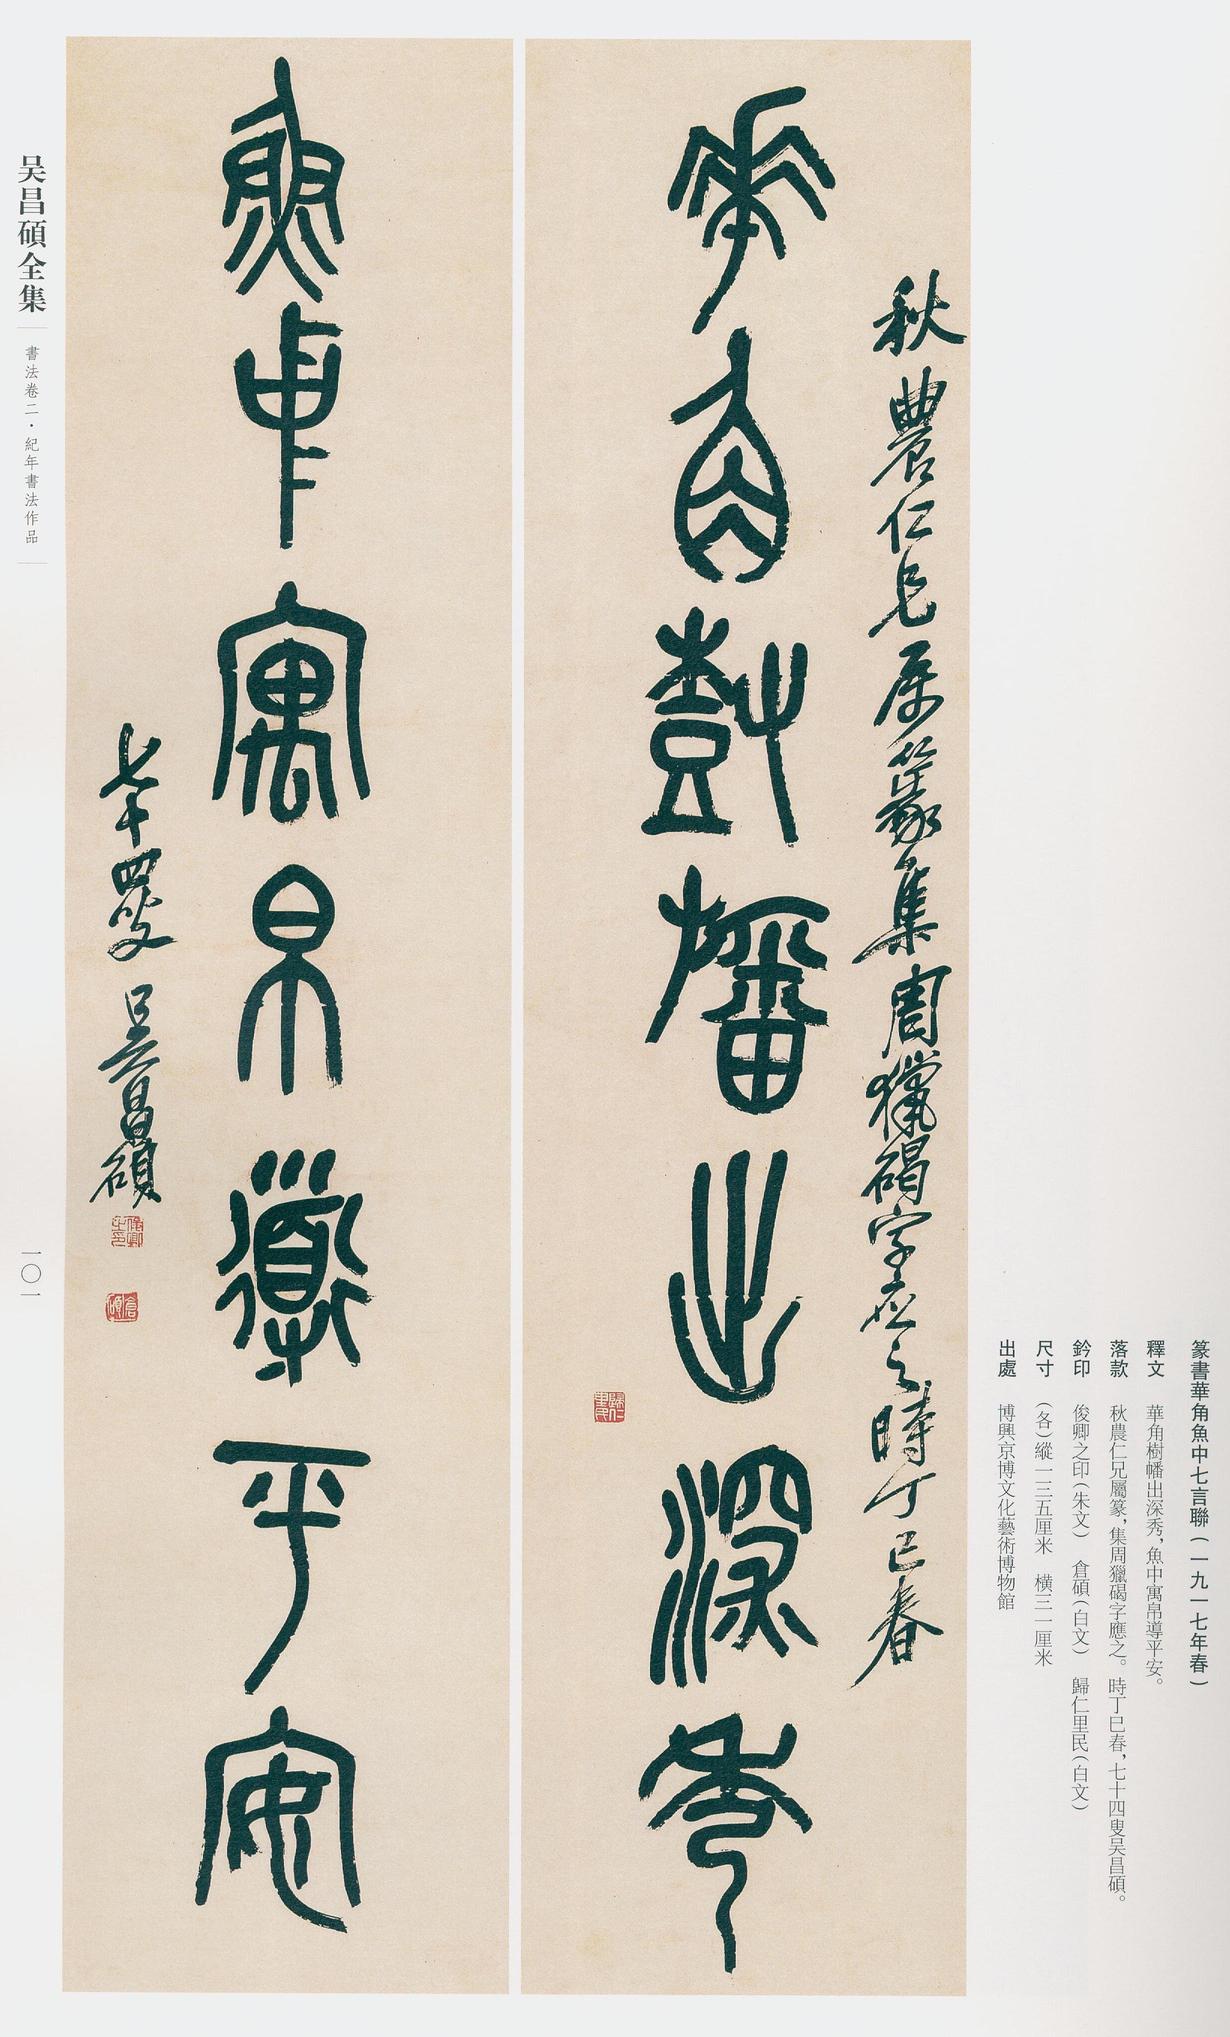 秋農仁兄属篆集周獵碣字應之時丁巳春
華角樹幡出深秀
魚中寓帛導平安
七十四叟吴昌碩
歸仁里民
俊卿之印
倉碩
篆書華角魚中七言聯(一九一七年春)
釋文 華角樹幡出深秀，魚中寓帛導平安。
落款 秋農仁兄屬篆，集周獵碣字應之。時丁巳春，七十四叟吴昌碩。
鈐印 俊卿之印(朱文) 倉碩(白文) 歸仁里民(白文)
尺寸 (各)縱一三五厘米 橫三一厘米
出處 博興京博文化藝術博物館
吴昌碩全集
書法卷二·紀年書法作品
一〇一